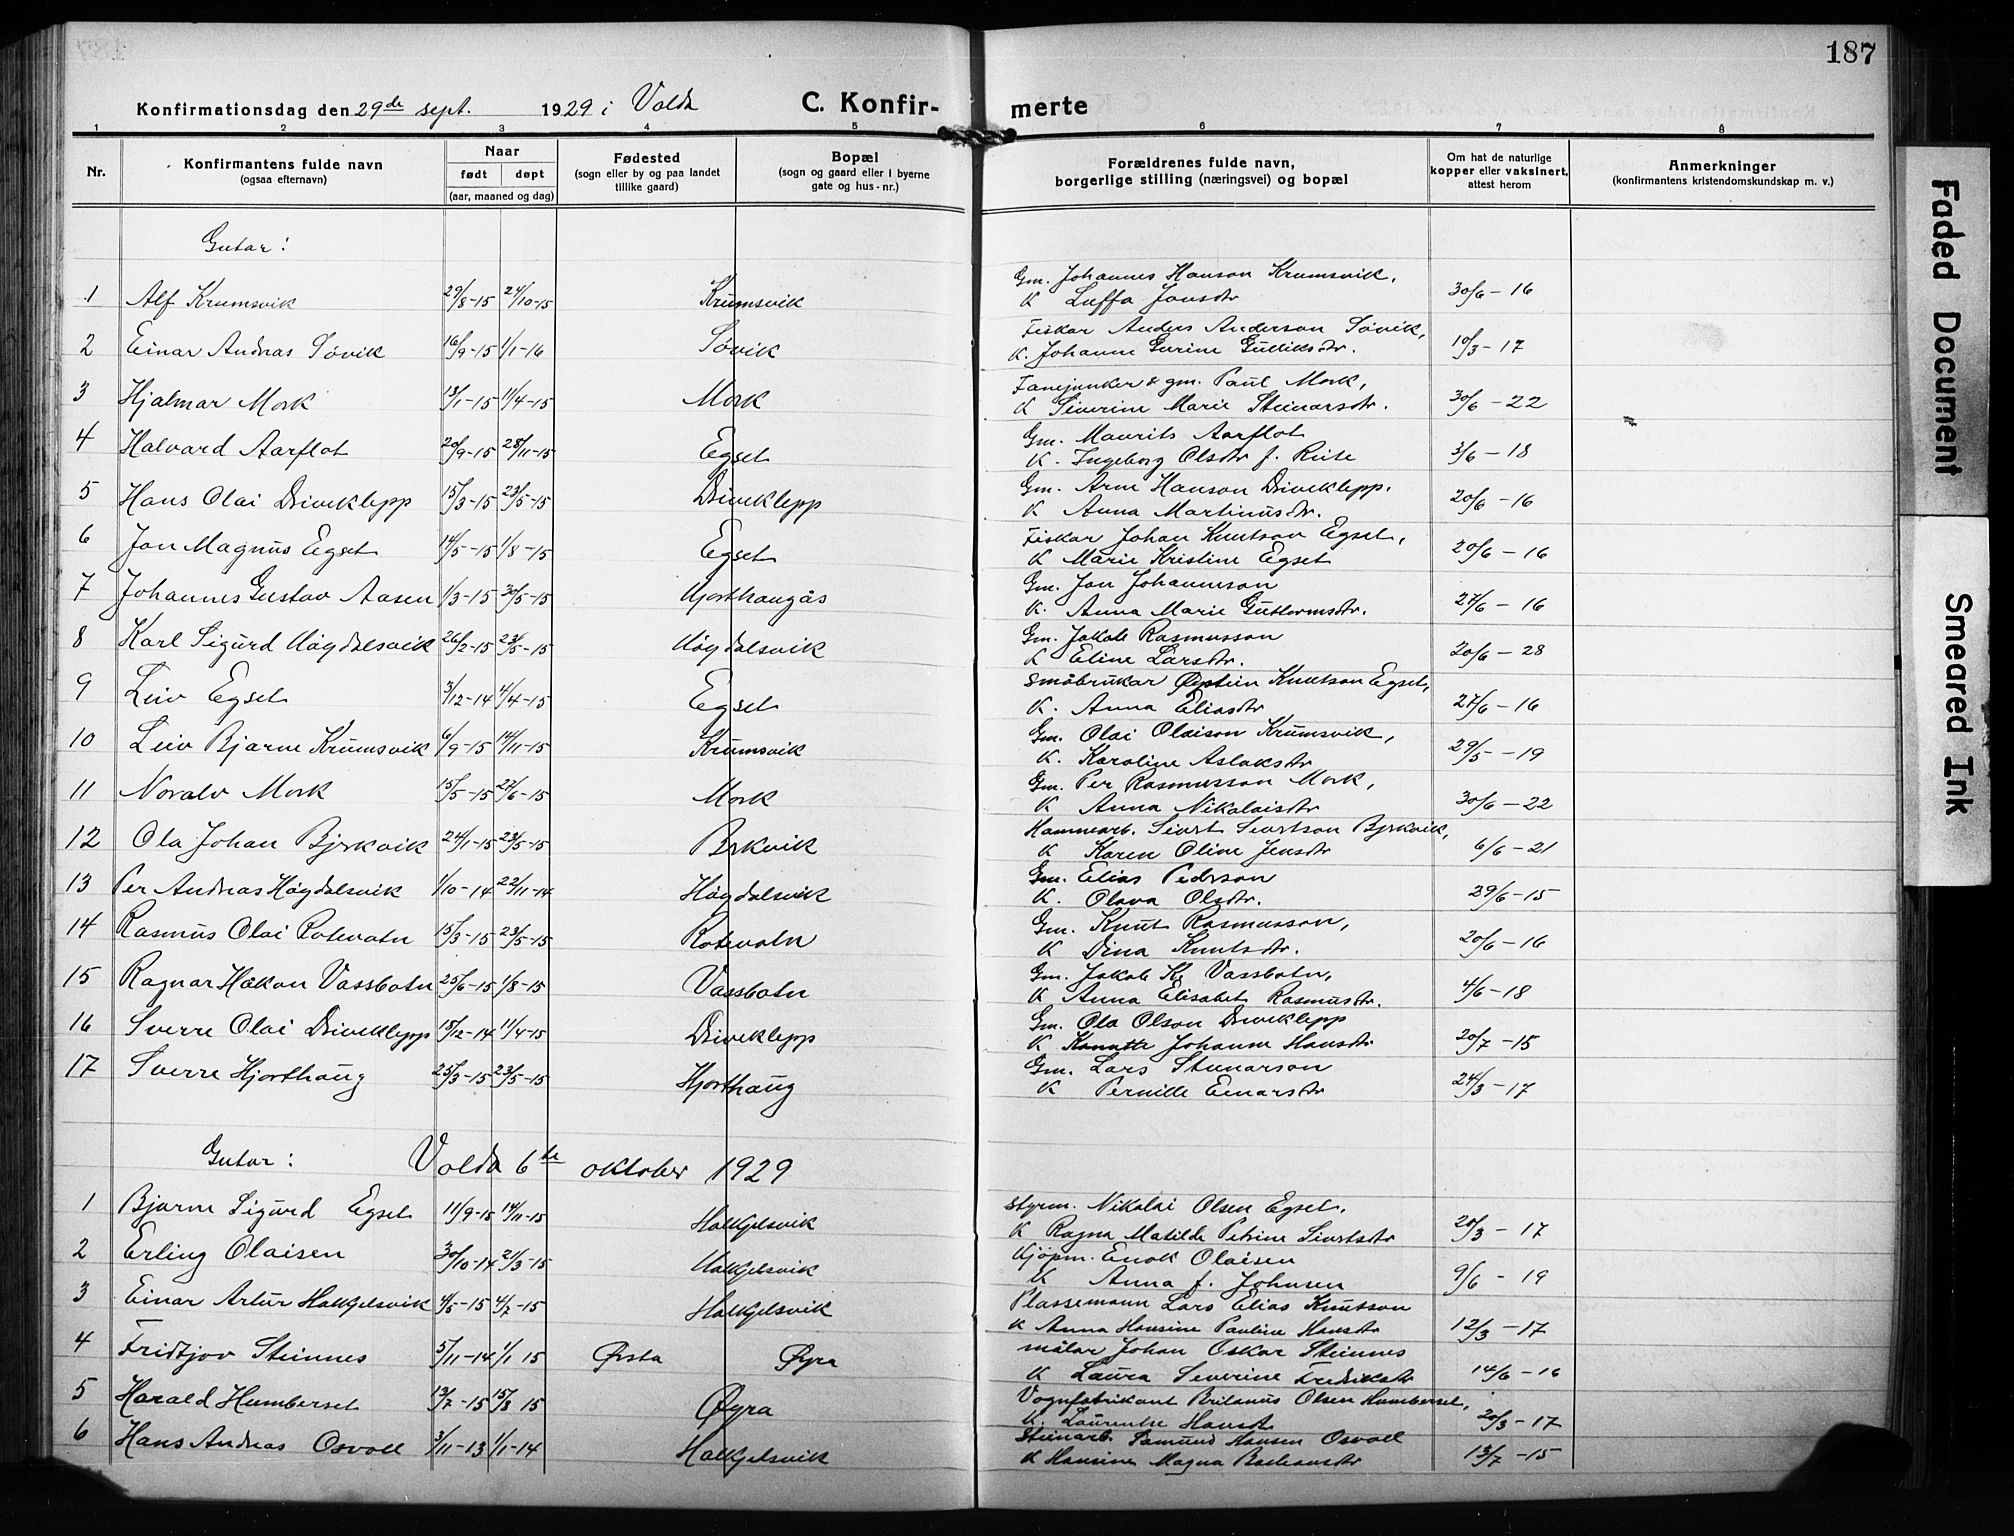 187
Konfirmationsdag den 29de sept. 1929 i Volda
C. Konfir-
merte
1 2 3 4 5 6 7 8
Nr.
Konfirmantens fulde navn
(ogsaa efternavn)
Naar
født døpt
(aar, maaned og dag)
Fødested
(sogn eller by og paa landet
tillike gaard)
Bopæl
(sogn og gaard eller i byerne
gate og hus-nr.)
Forældrenes fulde navn,
borgerlige stilling (næringsvei) og bopæl
Om hat de naturlige
kopper eller vaksinert,
attest herom
Anmerkninger
(konfirmantens kristendomskundskap m. v.)
Gutar:
1 Alf Krumsvik 29/8-15 24/10-15 Krumsvik Gm. Johannes Hanson Krumsvik,
K Luffa Jonsdtr 30/6-16
2 Einar Andreas Søvik 16/9-15 1/1-16 Søvik Fiskar Anders Anderson Søvik,
K. Johanne Gurine Gulliksdtr. 10/3-17
3 Hjalmar Mork 13/1-15 11/4-15 Mork Fanejunker & gm. Paul Mork,
K Siverine Marie Steinarsdtr. 30/6-22
4 Halvard Aarflot 20/9-15 28/11-15 Egset Gm. Maurits Aarflot
K. Ingeborg Olsdtr f. Rute 3/6-18
5 Hans Olai Driveklepp 15/3-15 23/5-15 Driveklepp Gm. Arne Hanson Driveklepp.
K Anna Martinusdtr. 20/6-16
6 Jon Magnus Egset 14/5-15 1/8-15 Egset Fiskar Johan Knutson Egset,
K Marie Kristine Egset 20/6-16
7 Johannes Gustav Aasen 1/3-15 30/5-15 Hjorthaugås Gm. Jon Johannesson
K. Anna Marie Guttormsdtr. 27/6-16
8 Karl Sigurd Høgdalsvik 26/2-15 23/5-15 Høgdalsvik Gm. Jakob Rasmusson
K Eline Larsdtr. 20/6-28
9 Leiv Egset 3/12-14 4/4-15 Egset Småbrukar Øystein Knutson Egset,
K. Anna Eliasdtr 27/6-16
10 Leiv Bjarne Krumsvik 6/9-15 14/11-15 Krumsvik Gm. Olai Olaison Krumsvik,
K. Karoline Aslaksdtr 29/5-19
11 Noralv Mork 15/5-15 27/6-15 Mork Gm. Per Rasmusson Mork,
K Anna Nikolaisdtr 30/6-22
12 Ola Johan Bjrkvik 24/1-15 23/5-15 Brkvik Hammarb. Sivert Sivertson Bjrkvik,
K Karen Oline Jensdtr 6/6-21
13 Per Andreas Høgdalsvik 1/10-14 22/11-14 Høgdalsvik Gm. Elias Pederson
K. Olava Olsdtr. 29/6-15
14 Rasmus Olai Rotevatn 15/3-15 23/5-15 Rotevatn Gm. Knut Rasmusson,
K Dina Knutsdtr. 20/6-16
15 Ragnar Håkon Vassbotn 25/6-15 1/8-15 Vassbotn Gm. Jakob Kr Vassbotn,
K Anna Elisabet Rasmusdtr. 4/6-18
16 Sverre Olai Driveklepp 15/12-14 11/4-15 Driveklepp Gm. Ola Olson Driveklepp
K Johanne Hansdtr 20/7-15
17 Sverre Hjorthaug 25/3-15 23/5-15 Hjorthaug Gm. Lars Steinarson
K Pernille Einarsdtr 24/3-17
Gutar: Volda 6te oktober 1929
1 Bjarne Sigurd Egset 11/9-15 14/11-15 Halkjelsvik Styrm. Nikolai Olsen Egset.
K Ragna Matilde Petrine Sivertsdtr 20/3-17
2 Erling Olaisen 30/10-14 21/3-15 Halkjelsvik Kjøpm. Enok Olaisen
K Anna f. Johnsen 9/6-19
3 Einar Artur Halkjelsvik 4/5-15 4/7-15 Halkjelsvik Plassemann Lars Elias Knutson
K Anna Hansine Pauline Hansdtr 12/3-17
4 Fridtjov Steinnes 5/11-14 1/1 15 Ørsta Øyra målar Johan Oskar Steinnes
K Laura Severine Fredriksdtr 14/6-16
5 Harald Humberset 13/7-15 15/8 15 Øyra Vognfabrikant Britanus Olsen Humberset,
K. Laurentse Hansdtr 20/3-17
6 Hans Andreas Osvoll 3/11-13 1/1-14 Halkjelsvik Steinarb. Samund Hansen Osvoll
K Hansine Magna Basteansdtr 13/7-15
Faded Document
Smeared Ink